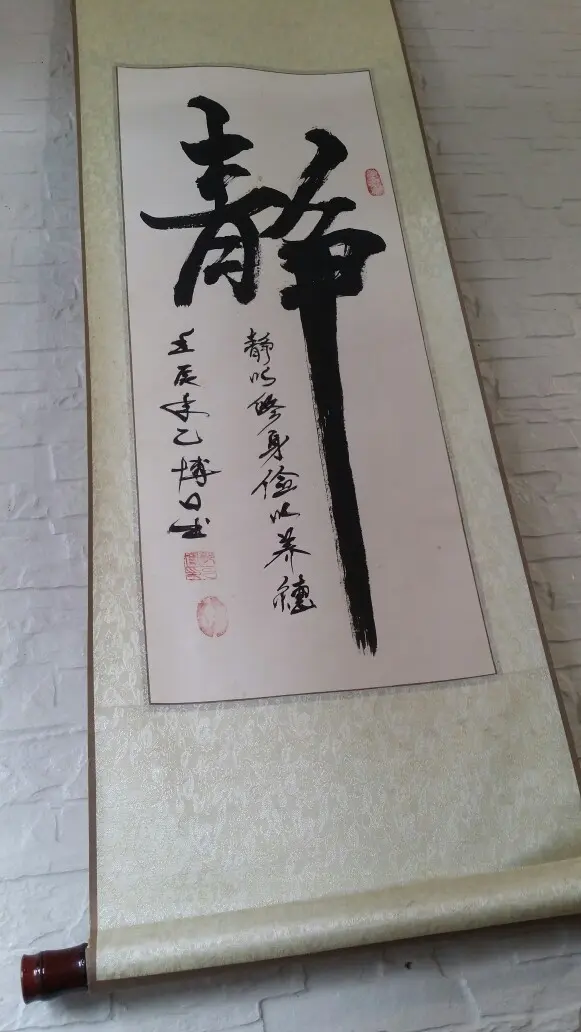 静
静以修身俭以养德
壬辰年乙博日书